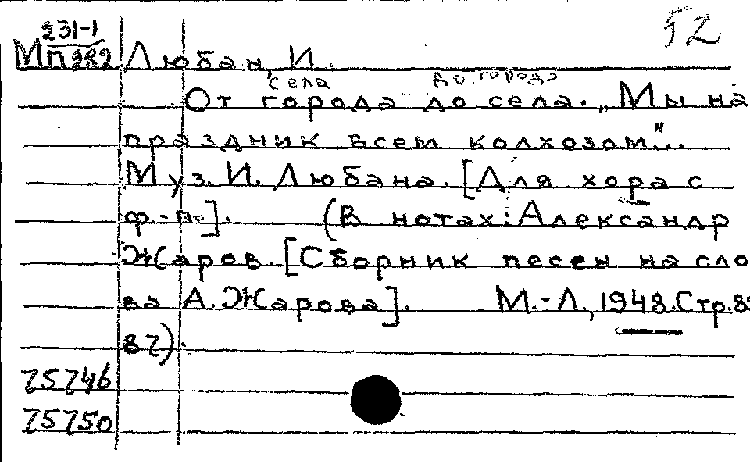 52
231-1
Мп 382 Любан, И.
села до города
От города до села. "Мы на
праздник всем колхозом"...
Муз. И. Любана. [Для хора с
ф.-п.]. (В нотах: Александр
Жаров. [Сборник песен на сло
ва А. Жарова]. М.-Л., 1948. Стр.
87).
75746
75750